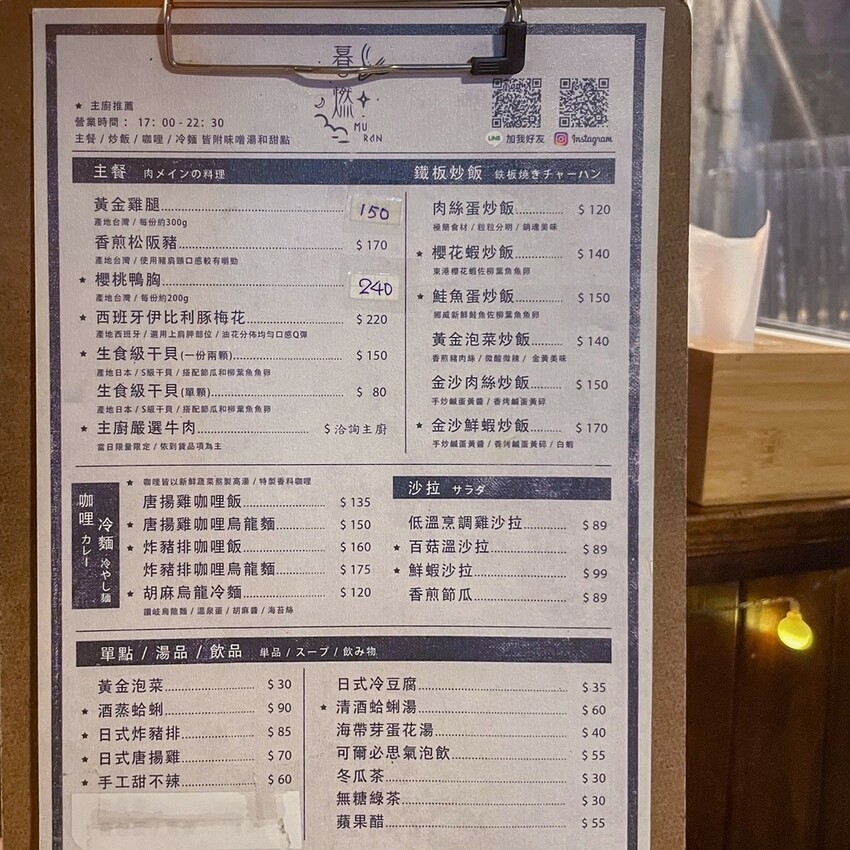 暮燃
MU
RAN
★ 主廚推薦
營業時間： 17：00 - 22：30
主餐 / 炒飯 / 咖哩 / 冷麵 皆附味噌湯和甜點
LINE 加我好友 Instagram
主餐 肉メインの料理
黃金雞腿 150
產地台灣 / 每份約300g
香煎松阪豬 $ 170
產地台灣 / 使用豬肩頸口感較有嚼勁
★ 櫻桃鴨胸 240
產地台灣 / 每份約200g
★ 西班牙伊比利豚梅花 $ 220
產地西班牙 / 選用上肩胛部位 / 油花分佈均勻口感Q彈
★ 生食級干貝(一份兩顆) $ 150
產地日本 / S級干貝 / 搭配節瓜和柳葉魚魚卵
生食級干貝(單顆) $ 80
產地日本 / S級干貝 / 搭配節瓜和柳葉魚魚卵
★ 主廚嚴選牛肉 $ 洽詢主廚
當日限量限定 / 依到貨品項為主
鐵板炒飯 鉄板焼きチャーハン
肉絲蛋炒飯 $ 120
極簡食材 / 粒粒分明 / 銷魂美味
★ 櫻花蝦炒飯 $ 140
東港櫻花蝦佐柳葉魚魚卵
★ 鮭魚蛋炒飯 $ 150
挪威新鮮鮭魚佐柳葉魚魚卵
黃金泡菜炒飯 $ 140
香煎豬肉絲 / 微酸微辣 / 金黃美味
金沙肉絲炒飯 $ 150
手炒鹹蛋黃醬 / 香烤鹹蛋黃碎
★ 金沙鮮蝦炒飯 $ 170
手炒鹹蛋黃醬 / 香烤鹹蛋黃碎 / 白蝦
咖哩 カレー
冷麵 冷やし麺
★ 咖哩皆以新鮮蔬菜熬製高湯 / 特製香料咖哩
唐揚雞咖哩飯 $ 135
★ 唐揚雞咖哩烏龍麵 $ 150
★ 炸豬排咖哩飯 $ 160
炸豬排咖哩烏龍麵 $ 175
★ 胡麻烏龍冷麵 $ 120
讚岐烏龍麵 / 溫泉蛋 / 胡麻醬 / 海苔絲
沙拉 サラダ
低溫烹調雞沙拉 $ 89
★ 百菇溫沙拉 $ 89
★ 鮮蝦沙拉 $ 99
香煎節瓜 $ 89
單點 / 湯品 / 飲品 単品 / スープ / 飲み物
黃金泡菜 $ 30
★ 酒蒸蛤蜊 $ 90
★ 日式炸豬排 $ 85
★ 日式唐揚雞 $ 70
★ 手工甜不辣 $ 60
日式冷豆腐 $ 35
★ 清酒蛤蜊湯 $ 60
海帶芽蛋花湯 $ 40
可爾必思氣泡飲 $ 55
冬瓜茶 $ 30
無糖綠茶 $ 30
蘋果醋 $ 55